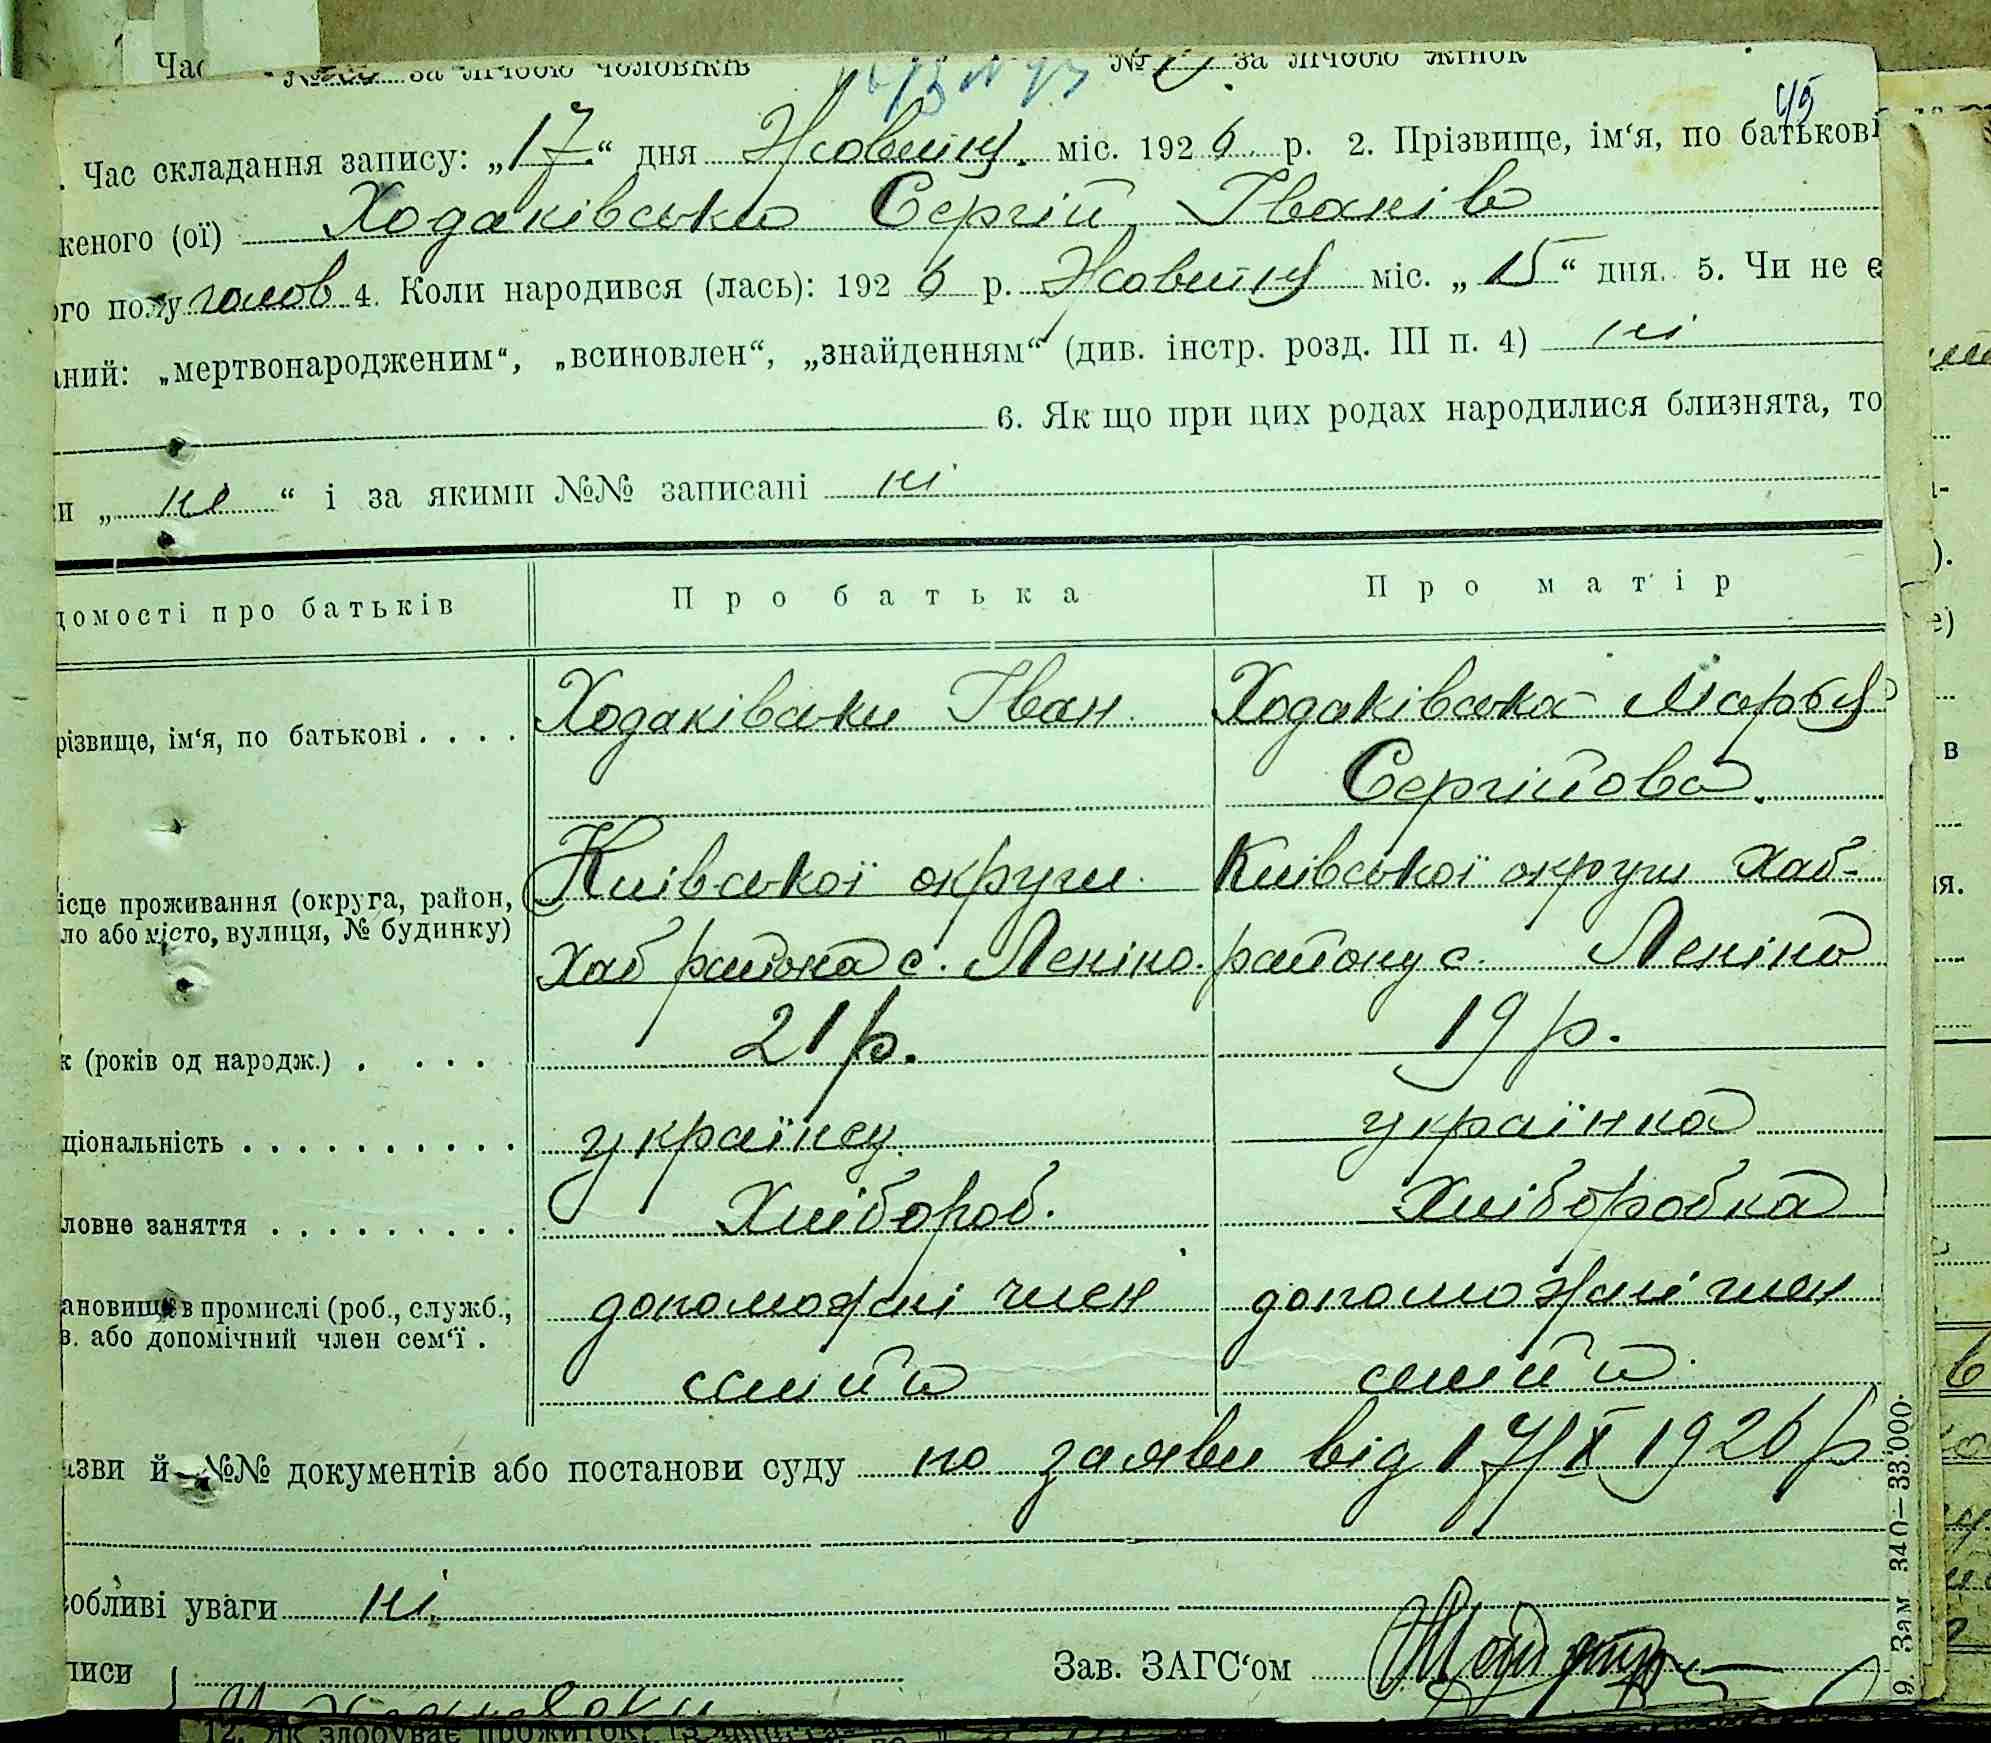 Час
№ за лічбою чоловіків № за лічбою жінок
45
. Час складання запису: „17“ дня Жовтня міс. 1926 р. 2. Прізвище, ім‘я, по батькові
женого (ої) Ходаківськи Сергій Іванів
ого полу чолов 4. Коли народився (лась): 1926 р. Жовтня міс. „15“ дня. 5. Чи не є
аний: „мертвонародженим“, „всиновлен“, „знайденням“ (див. інстр. розд. III п. 4) ні
6. Як що при цих родах народилися близнята, то
и „ні“ і за якими №№ записані ні
домості про батьків Про батька Про матір
різвище, ім‘я, по батькові Ходаківськи Іван Ходаківська
Сергійова
Київської округи Київської округи Хаб-
ісце проживання (округа, район,
ло або місто, вулиця, № будинку)
Хаб района с. Леніно. району с. Леніно
к (років од народж.) 21 р. 19 р.
ціональність українец українка
ловне заняття Хлібороб. Хліборобка
ановище в промислі (роб., служб., допоможні член допоможні член
в. або допомічний член сем‘ї . сімї сімї
азви й №№ документів або постанови суду по заяви від 17/X 1926 р
обливі уваги ні
Зав. ЗАГС‘ом
писи
9. Зам 340—33.000.
12. Як здобуває прожиток: